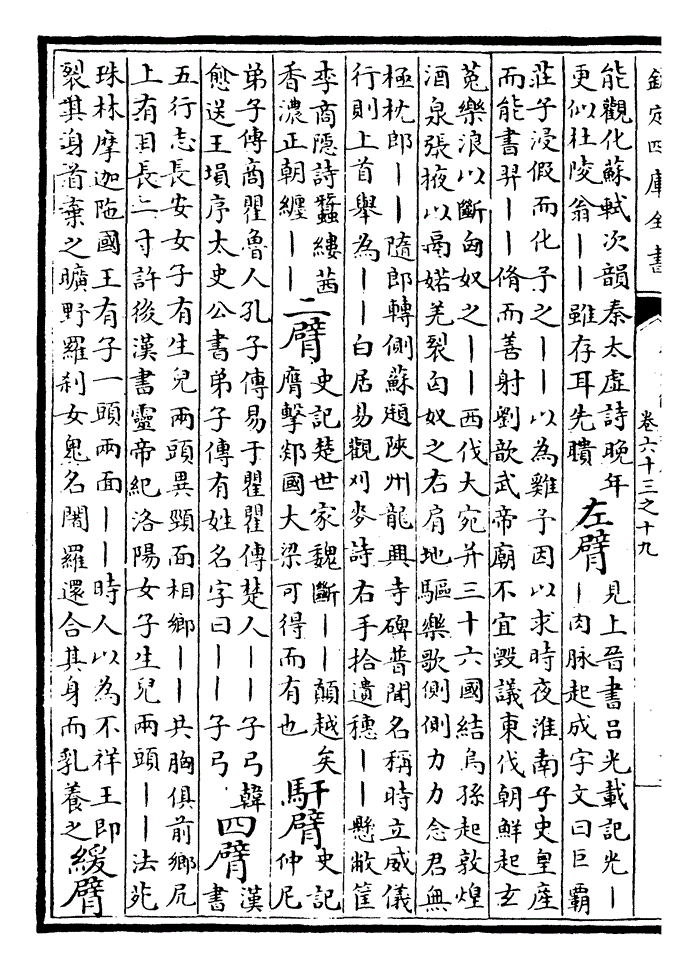 欽定四庫全書
卷六十三之十九
能觀化蘇軾次韻秦太虚詩晚年
更似杜陵翁丨丨雖存耳先聵
左臂
見上晉書吕光載記光丨
丨肉脉起成字文曰巨霸
莊子浸假而化子之丨丨以為雞子因以求時夜淮南子史皇産
而能書羿丨丨脩而善射劉歆武帝廟不宜毁議東伐朝鮮起玄
菟樂浪以斷匈奴之丨丨西伐大宛并三十六國結烏孫起敦煌
酒泉張掖以鬲婼羌裂匈奴之右肩地驅樂歌側側力力念君無
極枕郎丨丨隨郎轉側蘇頲陝州龍興寺碑普聞名稱時立威儀
行則上首舉為丨丨白居易觀刈麥詩右手拾遺穗丨丨懸敝筐
李商隱詩蠶縷茜
香濃正朝纏丨丨
二臂
史記楚世家魏斷丨丨顛越矣
膺擊郯國大梁可得而有也
馯臂
史記
仲尼
弟子傳商瞿魯人孔子傳易于瞿瞿傳楚人丨丨子弓韓
愈送王塤序太史公書弟子傳有姓名字曰丨丨子弓
四臂
漢
書
五行志長安女子有生兒兩頭異頸面相鄉丨丨共胸俱前鄉尻
上有目長二寸許後漢書靈帝紀洛陽女子生兒兩頭丨丨法苑
珠林摩迦陁國王有子一頭兩面丨丨時人以為不祥王即
裂其身首棄之曠野羅刹女鬼名闍羅還合其身而乳養之
緩臂